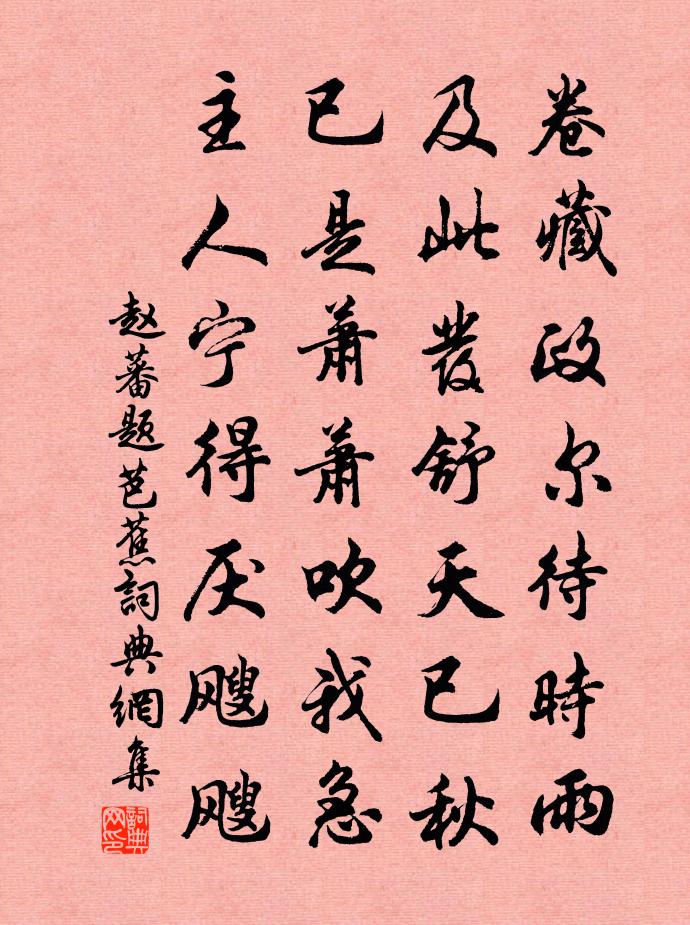 卷藏政尔待時雨
及此發舒天已秋
已是蕭蕭吹我急
主人宁得厌飕飕
赵蕃题芭蕉詞典網集
詞典网印